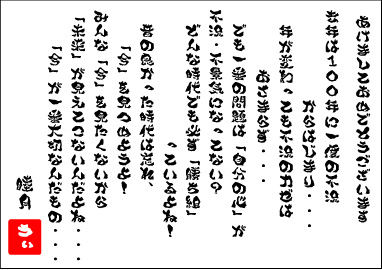 あけましておめでとうございます
昨年は100年に一度の不況
からはじまり・・・・
年が変わっても不況のカゼは
おさまらず・・・
でも一番の問題は「自分の心」が
不況・不景気になってない?
どんな時代でも必ず「勝ち組」
っているよね!
昔の良かった時代は忘れ、
「今」を見つめようよ!
みんな「今」を見たくないから
「未来」が見えてこないんだよね・・・
「今」が一番大切なんだもの・・・・
睦月